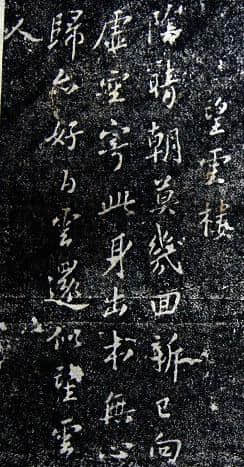 望雲樓
陰晴朝莫幾回新已向
虛空寄此身出本無心
歸亦好白雲還似望雲
人